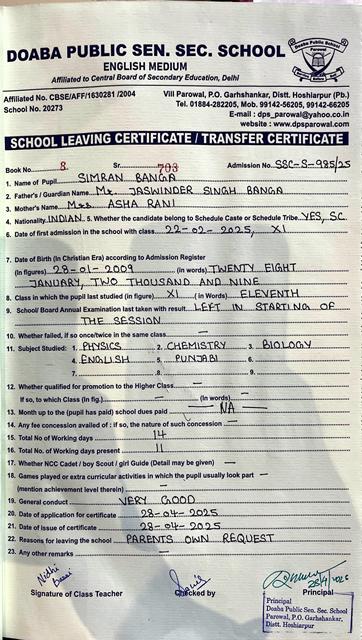 Doaba Public School
Parowal
DOABA PUBLIC SEN. SEC. SCHOOL
ENGLISH MEDIUM
Affiliated to Central Board of Secondary Education, Delhi
Affiliated No. CBSE/AFF/1630281 /2004
School No. 20273
Vill Parowal, P.O. Garhshankar, Distt. Hoshiarpur (Pb.)
Tel. 01884-282205, Mob. 99142-56205, 99142-66205
E-mail : dps_parowal@yahoo.co.in
website : www.dpsparowal.com
SCHOOL LEAVING CERTIFICATE / TRANSFER CERTIFICATE
Book No. 8 Sr. 703 Admission No. SSC-S-985/25
1. Name of Pupil SIMRAN BANGA
2. Father's / Guardian Name Mr. JASWINDER SINGH BANGA
3. Mother's Name Mrs. ASHA RANI
4. Nationality INDIAN 5. Whether the candidate belong to Schedule Caste or Schedule Tribe YES, SC
6. Date of first admission in the school with class 22-02-2025, XI
7. Date of Birth (In Christian Era) according to Admission Register
(In figures) 28-01-2009 (In words) TWENTY EIGHT
JANUARY, TWO THOUSAND AND NINE
8. Class in which the pupil last studied (in figure) XI ( in Words) ELEVENTH
9. School/ Board Annual Examination last taken with result LEFT IN STARTING OF
THE SESSION
10. Whether failed, if so once/twice in the same class —
11. Subject Studied: 1. PHYSICS 2. CHEMISTRY 3. BIOLOGY
4. ENGLISH 5. PUNJABI 6.
7. 8. 9.
12. Whether qualified for promotion to the Higher Class —
If so, to which Class (in fig.) — (In words) —
13. Month up to the (pupil has paid) school dues paid NA
14. Any fee concession availed of : if so, the nature of such concession —
15. Total No of Working days 14
16. Total No. of Working days present 11
17. Whether NCC Cadet / boy Scout / girl Guide (Detail may be given) —
18. Games played or extra curricular activities in which the pupil usually look part —
(mention achievement level therein) —
19. General conduct VERY GOOD
20. Date of application for certificate 28-04-2025
21. Date of issue of certificate 28-04-2025
22. Reasons for leaving the school PARENTS OWN REQUEST
23. Any other remarks —
Signature of Class Teacher
Checked by
Principal
Principal
Doaba Public Sen. Sec. School
P.O. Parowal, P.O. Garhshankar,
Distt. Hoshiarpur